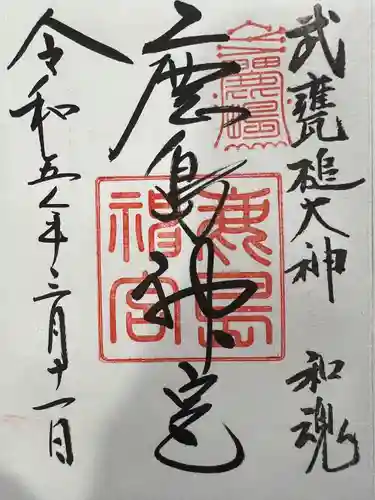 武甕槌大神 和魂
鹿島神宮
令和五年二月十一日
鹿島
神宮